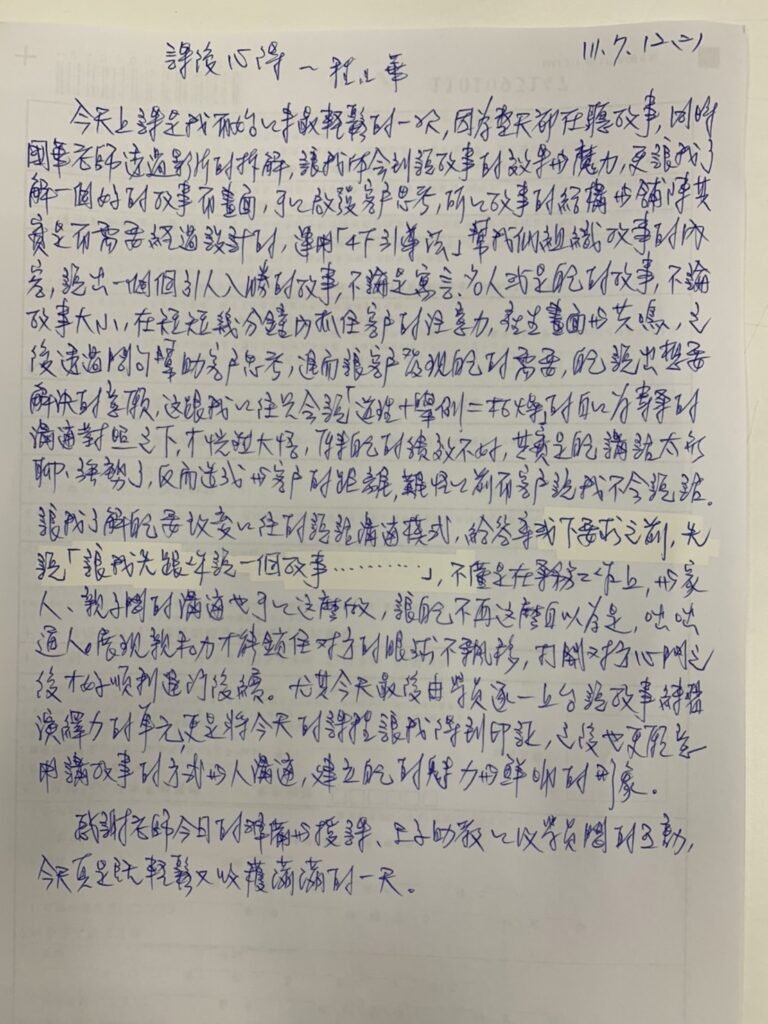 課後心得～程心華 111.7.12(二)
今天上課是我開始以來最輕鬆的一次，因為整天都在聽故事，同時
國華老師透過影片的拆解，讓我体会到說故事的效果與魔力，更讓我了
解一個好的故事有畫面，可以啟發客户思考，所以故事的結構與舖陳其
實是有需要經過設計的，運用「4下引導法」幫我們組織故事的內
容，說出一個個引人入勝的故事，不論是寓言、名人或是自己的故事，不論
故事大小，在短短幾分鐘內抓住客户的注意力，產生畫面與共鳴，之
後透過問句幫助客户思考，進而讓客户發現自己的需要，自己說出想要
解決的意願，这跟我以往只会說「道理+舉例=枯燥」的自以為專業的
溝通對照之下，才恍然大悟，原來自己的績效不好，其實是自己講話太無
聊、強勢了，反而造成與客户的距離，難怪以前有客户說我不会說話。
讓我了解自己要改变以往的說話溝通模式，給答案或下要求之前，先
說「讓我先跟你說一個故事…………」，不僅是在業務工作上，與家
人、親子間的溝通也可以这麼做，讓自己不再这麼自以為是，咄咄
逼人。展現親和力才能鎖住对方的眼球不飄移，打開对方心門之
後才好順利進行後續。尤其今天最後由學員逐一上台說故事練習
演繹力的單元，更是將今天的課程讓我得到印証，之後也更願意
用講故事的方式與人溝通，建立自己的魅力與鮮明的形象。
感謝老師今日的準備與授課、王子助教以及學員間的互動，
今天真是既輕鬆又收獲滿滿的一天。